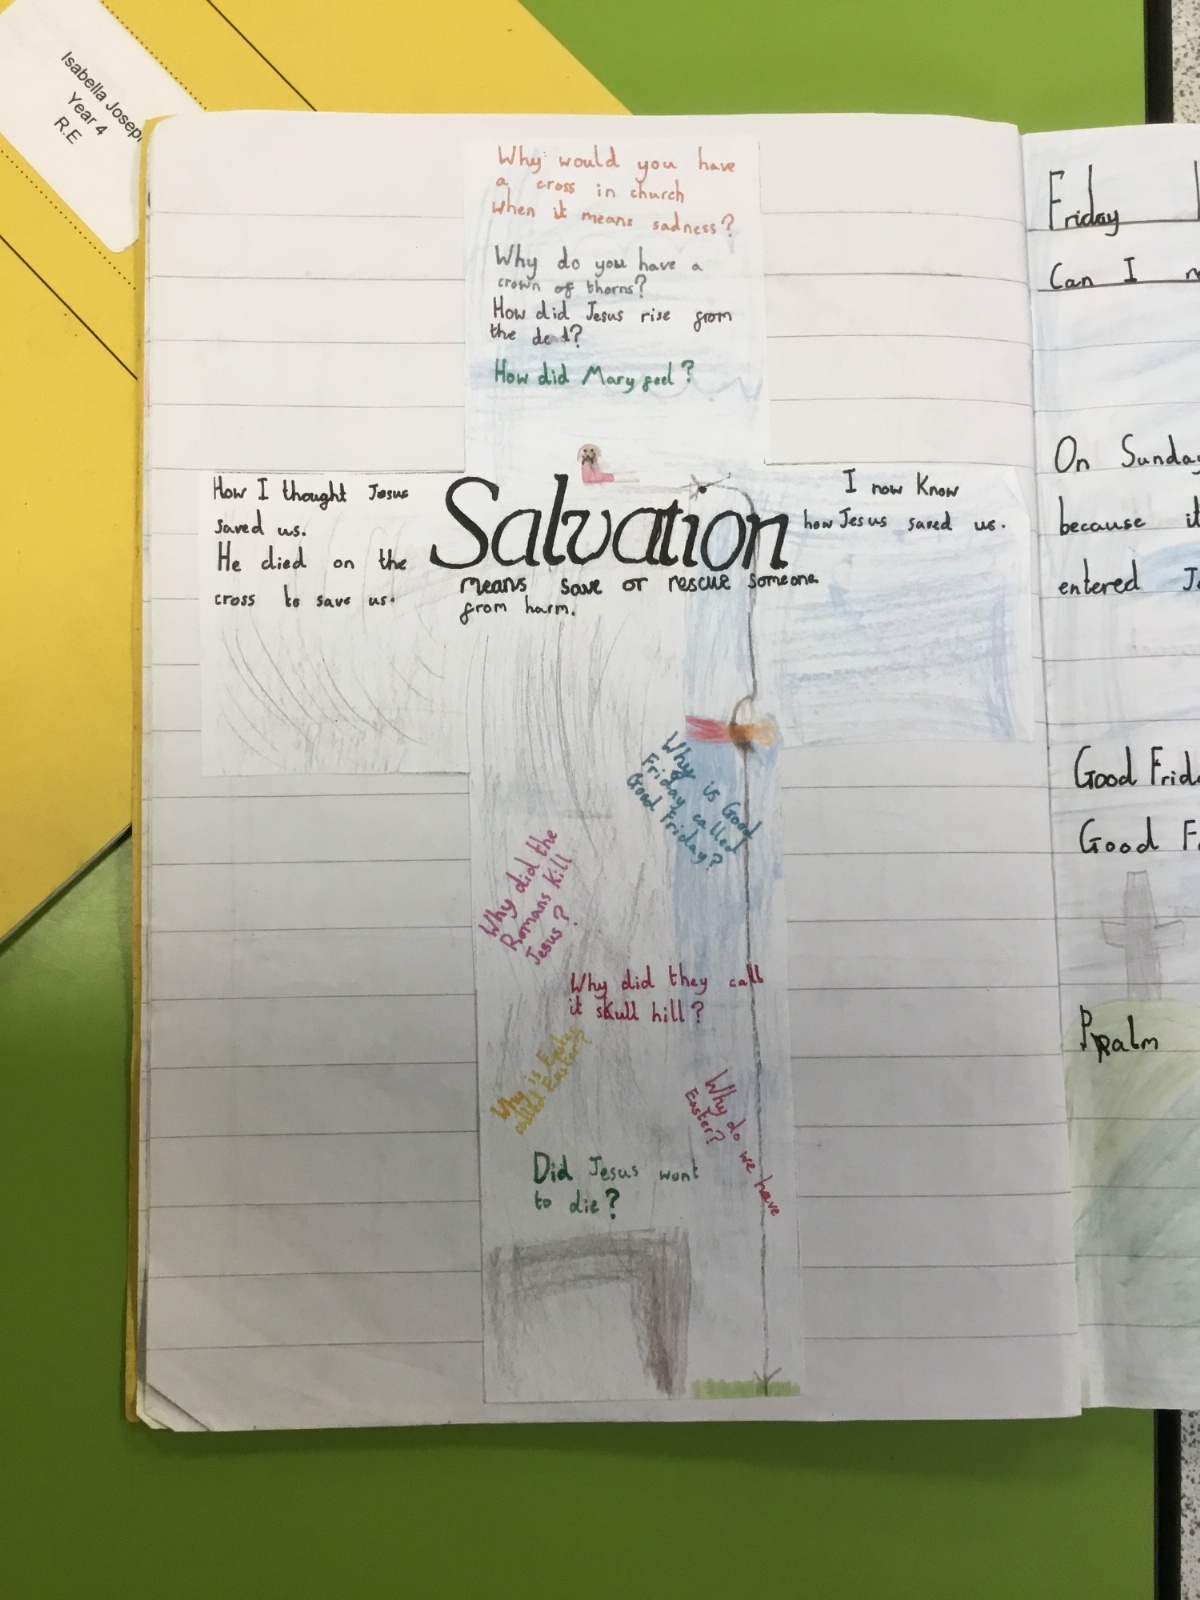 Isabella Joseph
Year 4
R.E
Why would you have
a cross in church
when it means sadness?
Why do you have a
crown of thorns?
How did Jesus rise from
the ded?
How did Mary feel?
How I thought Jesus
saved us.
He died on the
cross to save us.
Salvation
means save or rescue someone
from harm.
I now Know
how Jesus saved us.
Why is Good
Friday called
Good Friday?
Why did the
Romans Kill
Jesus?
Why did they call
it skull hill?
Why is
called Easter?
Why do we have
Easter?
Did Jesus want
to die?
Friday
Can I
On Sunday
because it
entered
Good
Good